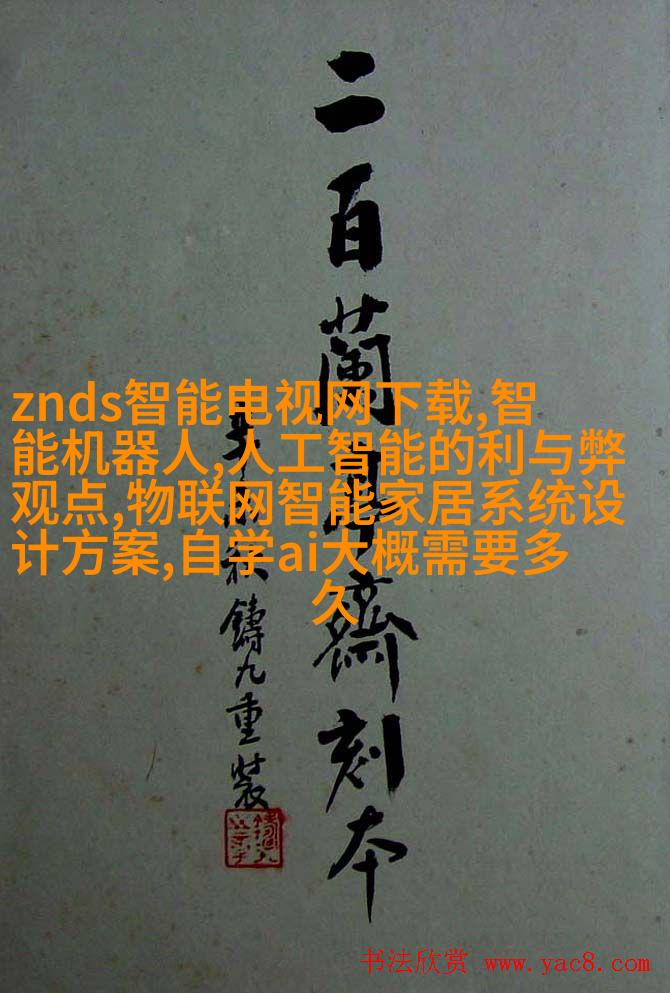 二百蘭亭齋刻本
秋鑄九重裝
znds智能电视网下载,智
能机器人,人工智能的利与弊
观点,物联网智能家居系统设
计方案,自学ai大概需要多
久
书法欣赏 www.yac8.com